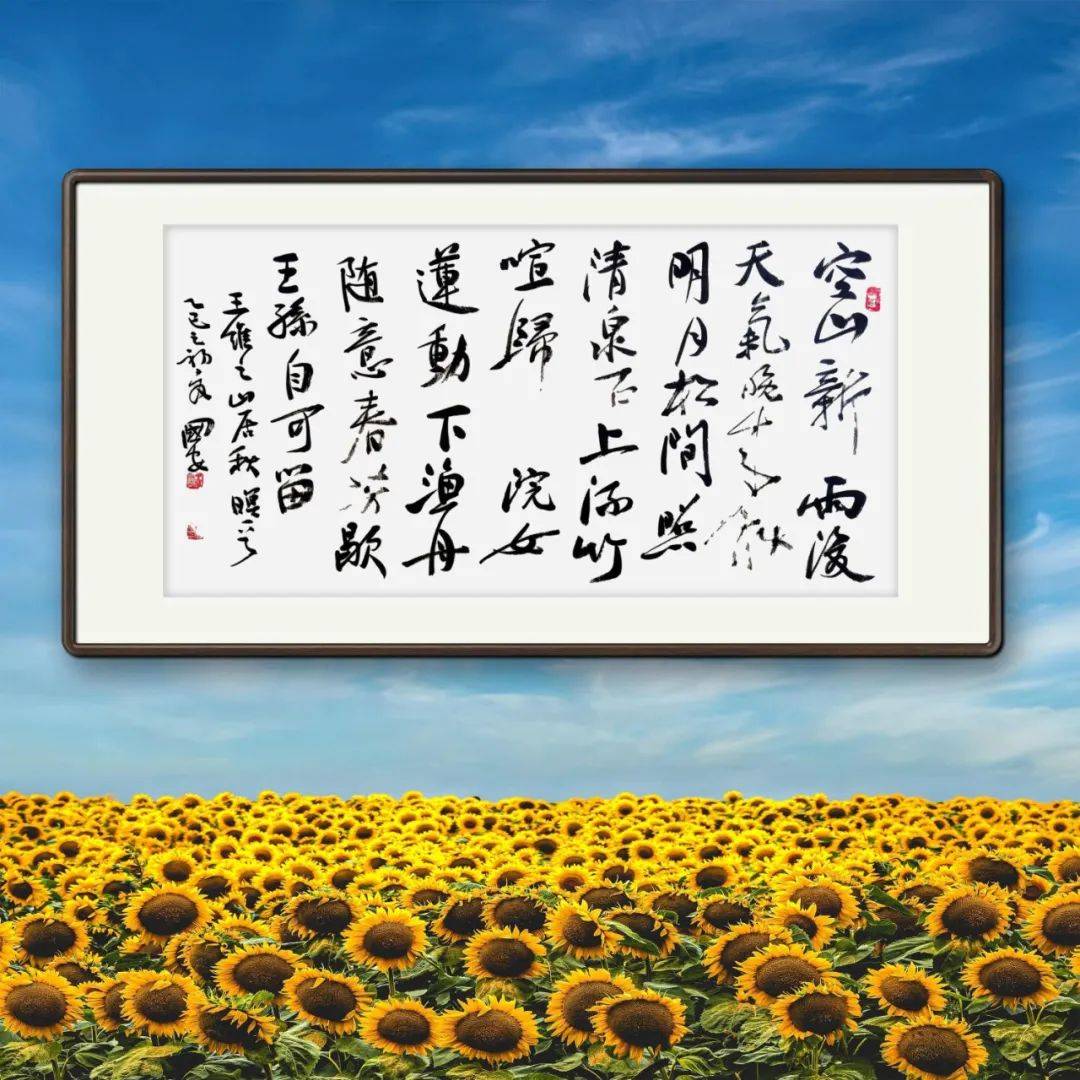 空山新雨後
天氣晚來秋
明月松間照
清泉石上流竹
喧歸浣女
蓮動下漁舟
随意春芳歇
王孫自可留
王維之山居秋暝
乙巳之初夏